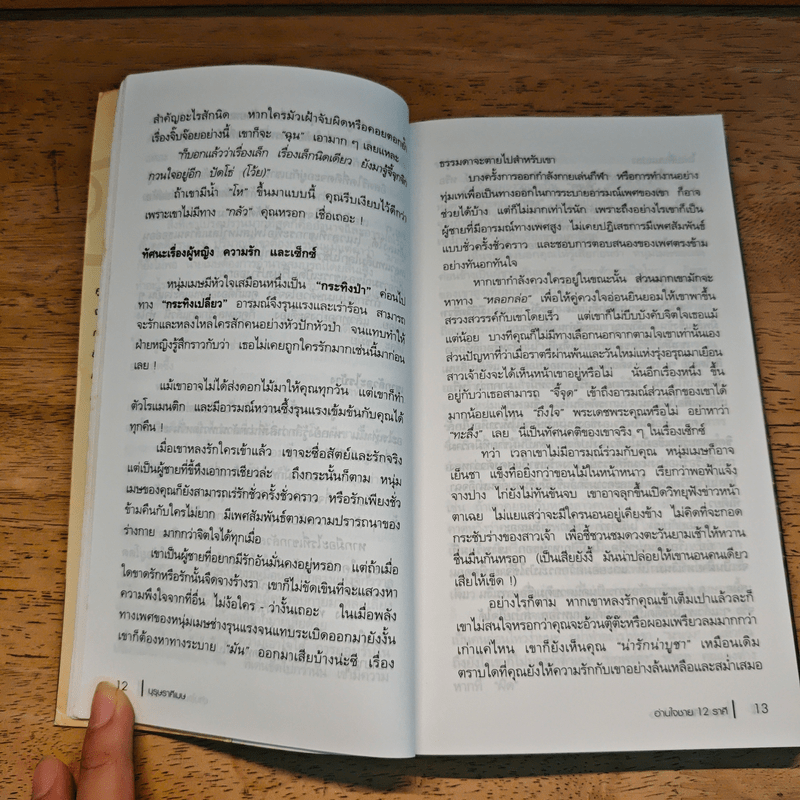 สำคัญอะไรสักนิด หากใครมัวเฝ้าจับผิดหรือคอยตอกย้ำ
เรื่องจิ๊บจ๊อยอย่างนี้ เขาก็จะ “ฉุน” เอามาก ๆ เลยแหละ
“ก็บอกแล้วว่าเรื่องเล็ก เรื่องเล็กนิดเดียว ยังมาจู้จี้จุกจิก
กวนใจอยู่อีก ปัดโธ่ (โว้ย)”
ถ้าเขามีน้ำ “โห” ขึ้นมาแบบนี้ คุณรีบเงียบไว้ดีกว่า
เพราะเขาไม่มีทาง “กลัว” คุณหรอก เชื่อเถอะ !
ทัศนะเรื่องผู้หญิง ความรัก และเซ็กซ์
หนุ่มเมษมีหัวใจเสมือนหนึ่งเป็น “กระทิงป่า” ค่อนไป
ทาง “กระทิงเปลี่ยว” อารมณ์จึงรุนแรงและเร่าร้อน สามารถ
จะรักและหลงใหลใครสักคนอย่างหัวปักหัวปำ จนแทบทำให้
ฝ่ายหญิงรู้สึกราวกับว่า เธอไม่เคยถูกใครรักมากเช่นนี้มาก่อน
เลย !
แม้เขาอาจไม่ได้ส่งดอกไม้มาให้คุณทุกวัน แต่เขาก็ทำ
ตัวโรแมนติก และมีอารมณ์หวานซึ้งรุนแรงเข้มข้นกับคุณได้
ทุกคืน !
เมื่อเขาหลงรักใครเข้าแล้ว เขาจะซื่อสัตย์และรักจริง
แต่เป็นผู้ชายที่ขี้หึงเอาการเชียวล่ะ ถึงกระนั้นก็ตาม หนุ่ม
เมษของคุณก็ยังสามารถเร่รักชั่วครั้งชั่วคราว หรือรักเพียงชั่ว
ข้ามคืนกับใครไม่ยาก มีเพศสัมพันธ์ตามความปรารถนาของ
ร่างกาย มากกว่าจิตใจได้ทุกเมื่อ
เขาเป็นผู้ชายที่อยากมีรักอันมั่นคงอยู่หรอก แต่ถ้าเมื่อ
ใดขาดรักหรือรักนั้นจืดจางร้างรา เขาก็ไม่ขัดเขินที่จะแสวงหา
ความพึงใจจากที่อื่น ไม่ง้อใคร - ว่างั้นเถอะ ในเมื่อพลัง
ทางเพศของหนุ่มเมษช่างรุนแรงจนแทบระเบิดออกมายังงั้น
เขาก็ต้องหาทางระบาย “มัน” ออกมาเสียบ้างน่ะซี เรื่อง
12 | บุรุษราศีเมษ
ธรรมดาจะตายไปสำหรับเขา
บางครั้งการออกกำลังกายเล่นกีฬา หรือการทำงานอย่าง
ทุ่มเทเพื่อเป็นทางออกในการระบายอารมณ์เพศของเขา ก็อาจ
ช่วยได้บ้าง แต่ก็ไม่มากเท่าไรนัก เพราะถึงอย่างไรเขาก็เป็น
ผู้ชายที่มีอารมณ์ทางเพศสูง ไม่เคยปฏิเสธการมีเพศสัมพันธ์
แบบชั่วครั้งชั่วคราว และชอบการตอบสนองของเพศตรงข้าม
อย่างทันอกทันใจ
หากเขากำลังควงใครอยู่ในขณะนั้น ส่วนมากเขามักจะ
หาทาง “หลอกล่อ” เพื่อให้คู่ควงใจอ่อนยินยอมให้เขาพาขึ้น
สรวงสวรรค์กับเขาโดยเร็ว แต่เขาก็ไม่บีบบังคับจิตใจเธอแม้
แต่น้อย บางทีคุณก็ไม่มีทางเลือกนอกจากตามใจเขาเท่านั้นเอง
ส่วนปัญหาที่ว่าเมื่อราตรีผ่านพ้นและวันใหม่แห่งรุ่งอรุณมาเยือน
สาวเจ้ายังจะได้เห็นหน้าเขาอยู่หรือไม่ นั่นอีกเรื่องหนึ่ง ขึ้น
อยู่กับว่าเธอสามารถ “จี้จุด” เข้าถึงอารมณ์ส่วนลึกของเขาได้
มากน้อยแค่ไหน “ถึงใจ” พระเดชพระคุณหรือไม่ อย่าหาว่า
“ทะลึ่ง” เลย นี่เป็นทัศนคติของเขาจริง ๆ ในเรื่องเซ็กซ์
ทว่า เวลาเขาไม่มีอารมณ์ร่วมกับคุณ หนุ่มเมษก็อาจ
เย็นชา แข็งทื่อยิ่งกว่าขอนไม้ในหน้าหนาว เรียกว่าพอฟ้าแจ้ง
จางปาง ไก่ยังไม่ทันขันจบ เขาอาจลุกขึ้นเปิดวิทยุฟังข่าวหน้า
ตาเฉย ไม่แยแสว่าจะมีใครนอนอยู่เคียงข้าง ไม่คิดที่จะกอด
กระชับร่างของสาวเจ้า เพื่อชี้ชวนชมดวงตะวันยามเช้าให้หวาน
ชื่นมื่นกันหรอก (เป็นเสียยังงี้ มันน่าปล่อยให้เขานอนคนเดียว
เสียให้เข็ด !)
อย่างไรก็ตาม หากเขาหลงรักคุณเข้าเต็มเปาแล้วละก็
เขาไม่สนใจหรอกว่าคุณจะอ้วนตุ๊ต๊ะหรือผอมเพรียวลมมากกว่า
เก่าแค่ไหน เขาก็ยังเห็นคุณ “น่ารักน่าบูชา” เหมือนเดิม
ตราบใดที่คุณยังให้ความรักกับเขาอย่างล้นเหลือและสม่ำเสมอ
อ่านใจชาย 12 ราศี | 13